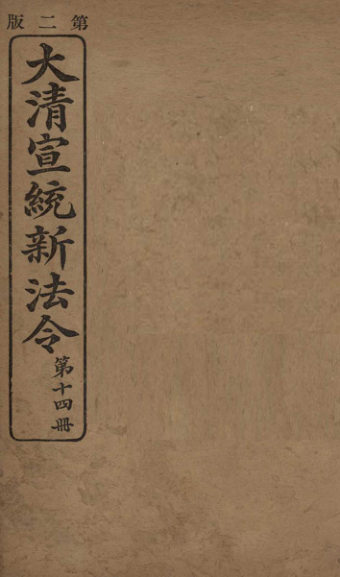 第二版
大清宣統新法令
第十四冊